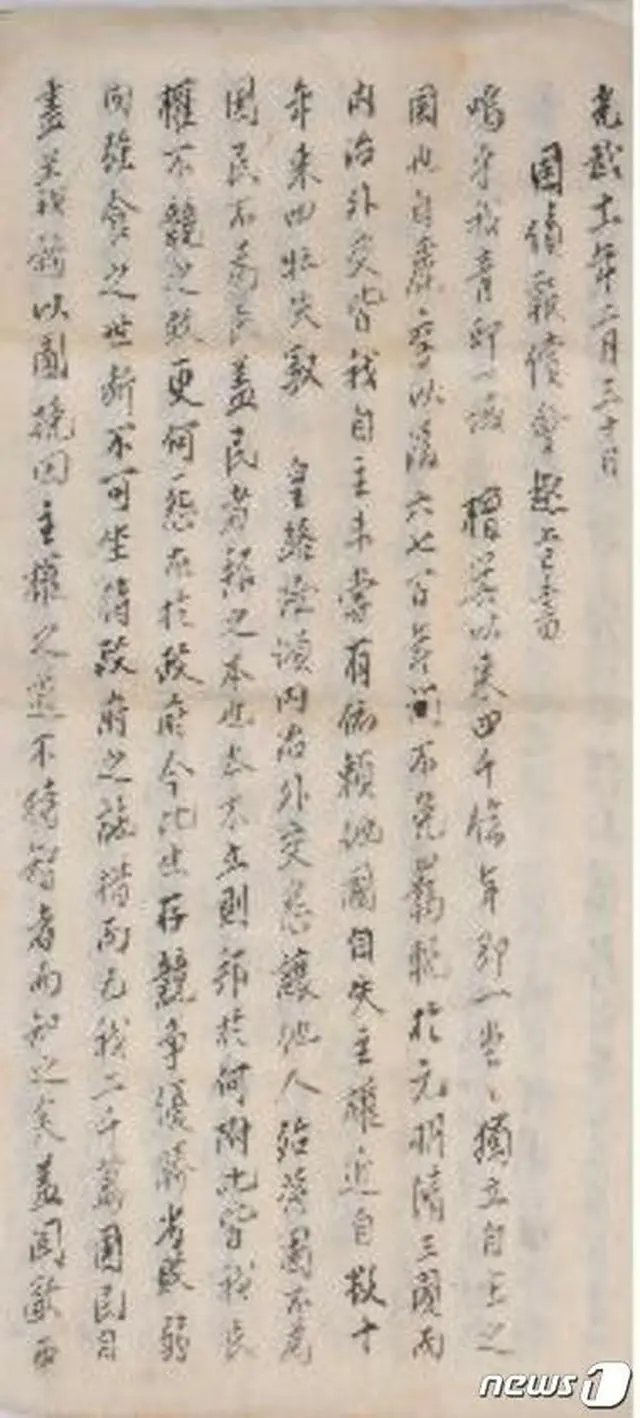 光武十一年二月三十日
國債報償會趣旨書
嗚乎我青邱一域 檀箕以來四千餘年即一堂々獨立自主之
國也自麗季以後六七百年間不免羈軛於元明淸三國而
內治外交皆我自主未嘗有依賴他國自失主權近自數十
年來四壯失敦 皇路險傾內治外交悉讓他人殆落國不爲
國民不爲民盖民者邦之本也本不立則邦於何附此皆我民
權不競之致更何怨尤於政府今此生存競爭優勝劣敗弱
肉强食之世斷不可坐待政府之施措而已我二千萬國民自
盡義務以圖挽回主權之道不待智者而知之矣盖國敵
news1